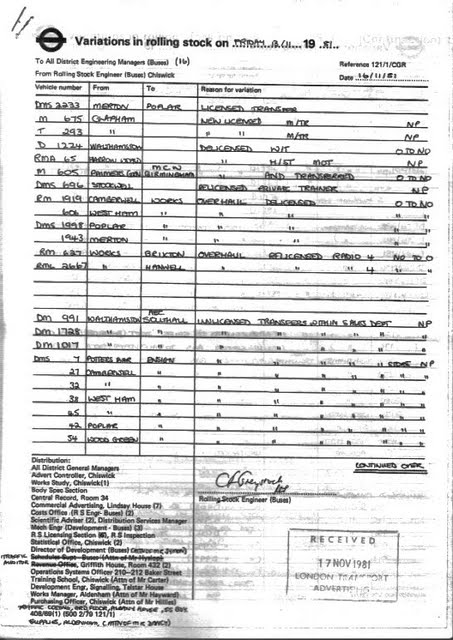 Variations in rolling stock on FRIDAY 13/11 19 81.
To All District Engineering Managers (Buses) (16)
Reference 121/1/CGR
From Rolling Stock Engineer (Buses) Chiswick
Date 16/11/81
Vehicle number From To Reason for variation
DMS 2233 MERTON POPLAR LICENSED TRANSFER
M 675 CLAPHAM NEW LICENSED M/TR NP
T 293 " " " M/TR NP
D 1224 WALTHAMSTOW DELICENSED WIT O TO NO
RMA 65 H/IST MOT NP
M 605 PALMERS GRN M.C.W BIRMINGHAM " AND TRANSFERRED O TO NO
DMS 696 STOCKWELL RELICENSED PRIVATE TRAINER NP
RM 1919 CAMBERWELL WORKS OVERHAUL DELICENSED O TO NO
606 WEST HAM " " " "
DMS 1998 POPLAR " " " "
1943 MERTON " " " "
RM 627 WORKS BRIXTON OVERHAUL RELICENSED RADIO 4 NO TO O
RML 2667 " HANWELL " " " 4 "
DM 991 WALTHAMSTOW AEC SOUTHALL UNLICENSED TRANSFERS WITHIN SALES DEPT NP
DM 1728 " " " " " " " "
DM 1017 " " " " " " " "
DMS 7 POTTERS BAR ENSHAM " " " " STORE NP
27 CAMBERWELL " " " " " " "
32 " " " " " " " "
38 WEST HAM " " " " " " "
" " " " " " " "
42 POPLAR " " " " " " "
54 WOOD GREEN " " " " " " "
CONTINUED OVER
Distribution:
All District General Managers
Advert Controller, Chiswick
Works Study, Chiswick(1)
Body Spec Section
Central Record, Room 34
Commercial Advertising, Lindsay House (7)
Costs Office (R S Engr- Buses) (2)
Scientific Adviser (2), Distribution Services Manager
Mech Engr (Development - Buses) (3)
R S Licensing Section (6), R S Inspection
Statistical Office, Chiswick (2)
Director of Development (Buses)
Scheduled Supt - Buses (Attn of Mr Joyner)
Revenue Office, Griffith House, Room 432 (2)
Operations Systems Officer 210-212 Baker Street
Training School, Chiswick (Attn of Mr Carter)
Development Engr, Signalling, Telstar House
Works Manager, Aldenham (Attn of Mr Hayward)
Purchasing Officer, Chiswick (Attn of Mr Hillies)
408/69(1) (500 2/79 121/1)
Rolling Stock Engineer (Buses)
TRAFFIC AUDITOR
RECEIVED
17 NOV 1981
LONDON TRANSPORT
ADVERTISING